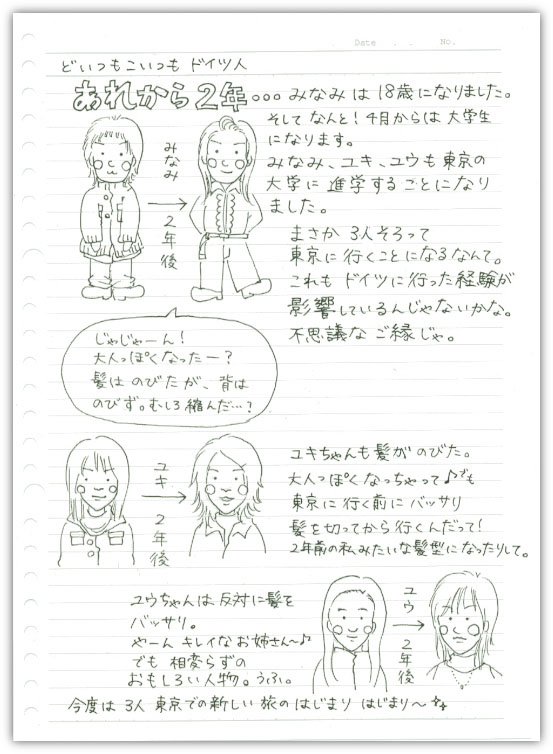 Date . . No.
どいつもこいつも ドイツ人
あれから2年…みなみは18歳になりました。
そして なんと！4月からは 大学生
になります。
みなみ、ユキ、ユウも東京の
大学に 進学することになり
ました。
まさか 3人そろって
東京に行くことになるなんて。
これも ドイツに行った経験が
影響しているんじゃないかな。
不思議な ご縁じゃ。
みなみ
2年後
じゃじゃーん！
大人っぽくなったー？
髪は のびたが、背は
のびず。むしろ縮んだ…？
ユキ
2年後
ユキちゃんも髪がのびた。
大人っぽくなっちゃって♪でも
東京に行く前に バッサリ
髪を切ってから行くんだって！
2年前の私みたいな髪型になったりして。
ユウちゃんは 反対に髪を
バッサリ。
やーん キレイなお姉さん〜♪
でも 相変らずの
おもしろい人物。うふ。
ユウ
2年後
今度は 3人 東京での新しい旅の はじまり はじまり〜